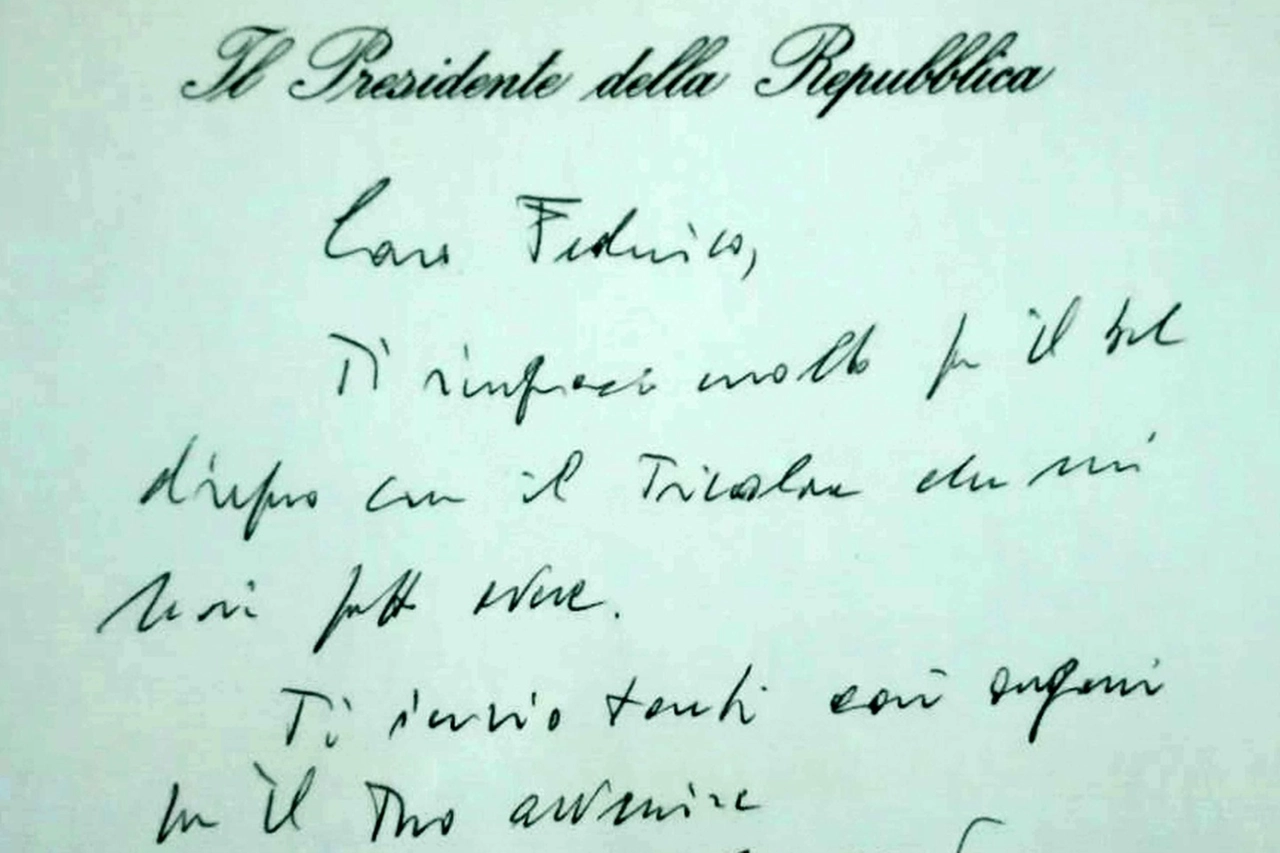 Il Presidente della Repubblica
Caro Federico,
Ti ringrazio molto per il bel
disegno con il Tricolore che mi
hai fatto avere.
Ti invio tanti cari auguri
per il Tuo avvenire